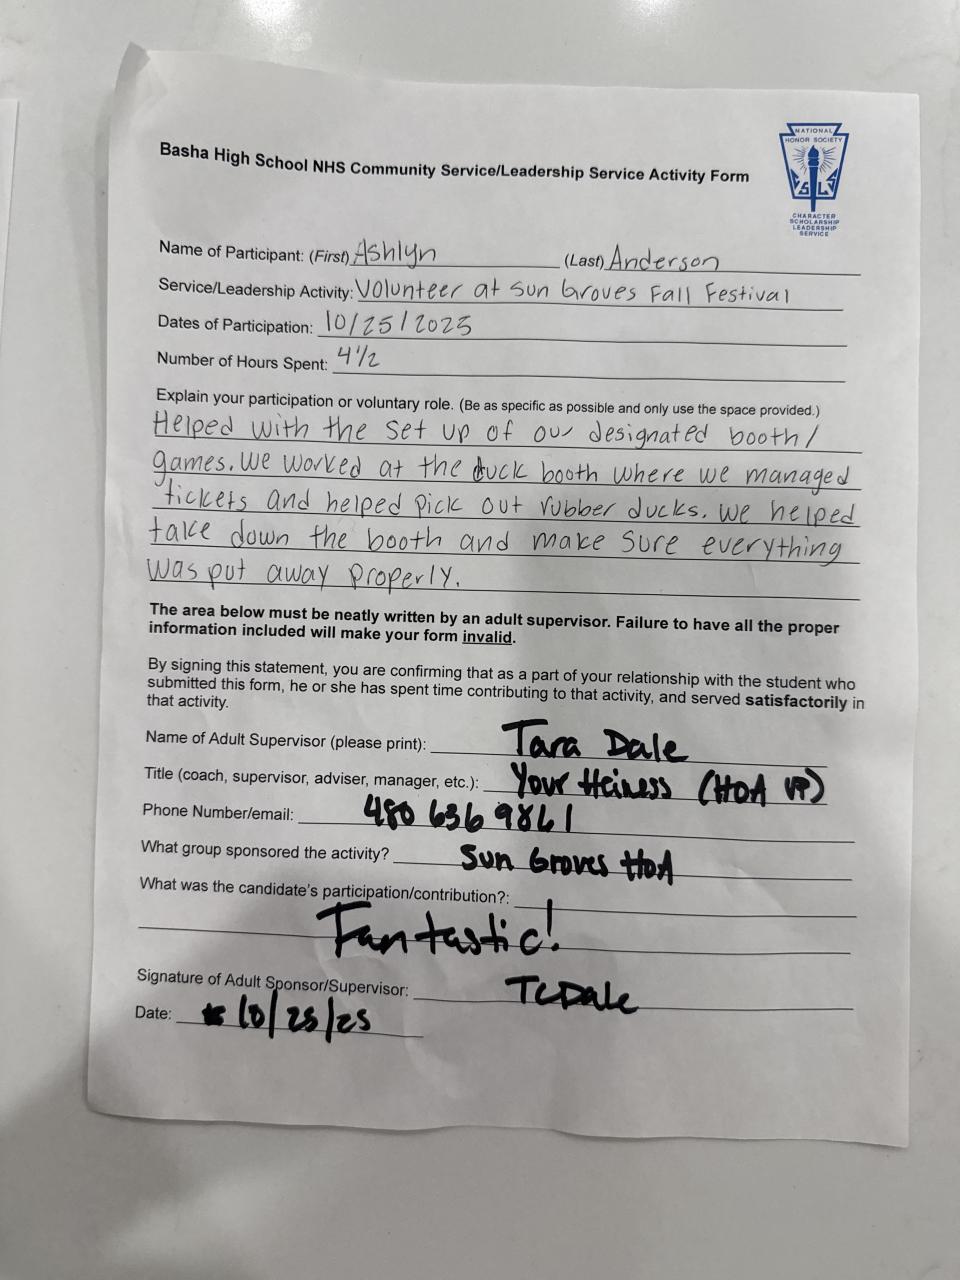 NATIONAL
HONOR SOCIETY
CHARACTER
SCHOLARSHIP
LEADERSHIP
SERVICE
Basha High School NHS Community Service/Leadership Service Activity Form
Name of Participant: (First) Ashlyn (Last) Anderson
Service/Leadership Activity: Volunteer at Sun Groves Fall Festival
Dates of Participation: 10/25/2025
Number of Hours Spent: 4 1/2
Explain your participation or voluntary role. (Be as specific as possible and only use the space provided.)
Helped with the set up of our designated booth/
games. We worked at the duck booth where we managed
tickets and helped pick out rubber ducks. We helped
take down the booth and make sure everything
was put away properly.
The area below must be neatly written by an adult supervisor. Failure to have all the proper
information included will make your form invalid.
By signing this statement, you are confirming that as a part of your relationship with the student who
submitted this form, he or she has spent time contributing to that activity, and served satisfactorily in
that activity.
Name of Adult Supervisor (please print): Tara Dale
Title (coach, supervisor, adviser, manager, etc.): Your Heiness (HOA VP)
Phone Number/email: 480 636 9861
What group sponsored the activity? Sun Groves HOA
What was the candidate's participation/contribution?:
Fantastic!
Signature of Adult Sponsor/Supervisor: TCDale
Date: 10/25/25